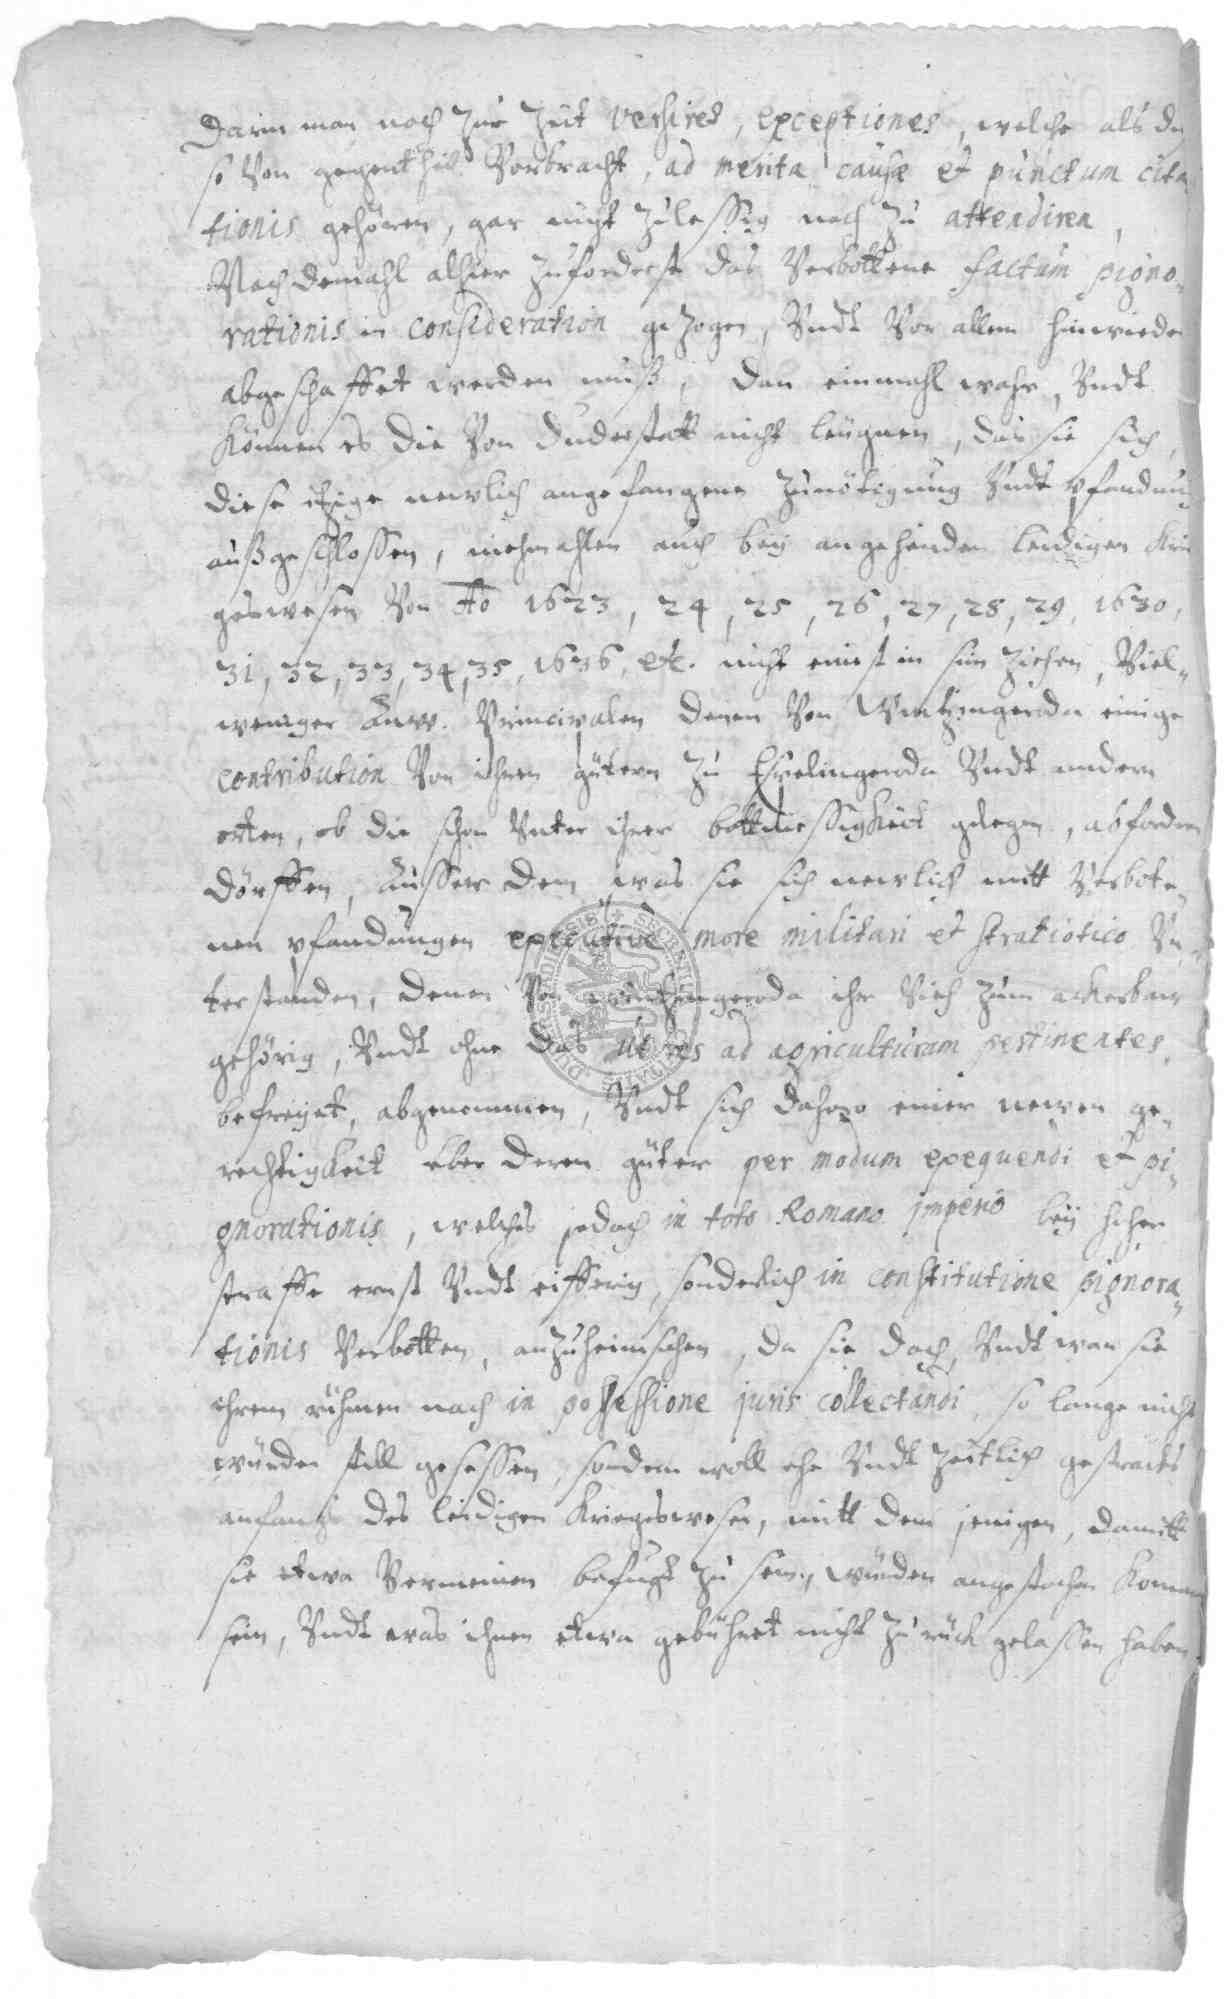 Darin man noch zur Zeit versires, exceptiones, welche als die
so von gegentheil vorbracht, ad merita causæ et punctum cita
tionis gehören, gar nicht zulessig noch zu attendiren,
Nachdemahl alhier zuforderst das verbottene factum pigno-
rationis in consideration gezogen, Undt vor allem hinwieder
abgeschaffet werden muß, Dan einmahl wahr, Undt
können es die von Duderstatt nicht leügnen, das sie sich,
diese itzige newlich angefangene zunötigung Undt pfandung
außgeschlossen, niehmahlen auch bey angehenden leidigen Krie
geswesen von Ao 1623, 24, 25, 26, 27, 28, 29, 1630,
31, 32, 33, 34, 35, 1636, etc. nicht einst in sin ziehen, Viel-
weniger Anw. Principalen denen von Wintzingeroda einige
contribution von ihren gütern zu Esplingeroda Undt andern
orten, ob die schon Unter ihrer bottmessigkeit gelegen, abfordern
dörffen, Ausser dem, was sie sich newlich mitt verbote-
nen pfandungen executive more militari et stratiotico Un-
terstanden, denen von Wintzingeroda ihr Vieh zum ackerbaw
gehörig, Undt ohne das ut res ad agriculturam pertinentes,
befreyet, abgenommen, Undt sich dahero einer newen ge-
rechtigkeit über deren güter per modum exequendi et pi-
gnorationis, welches jedoch in toto Romano imperio bey hoher
straffe ernst Undt eifferig, sonderlich in constitutione pignora-
tionis verbotten, anzuheimschen, da sie doch, Undt wan sie
ihrem rühmen nach in possessione juris collectandi, so lange nicht
würden still gesessen, sondern woll ehe Undt zeitlich gestracks
anfangs des leidigen Krigeswesen, mitt dem jenigen, damitt
sie etwa vermeinen befugt zu sein, würden angestochen kommen
sein, Undt was ihnen etwa gebühret nicht zurück gelassen haben